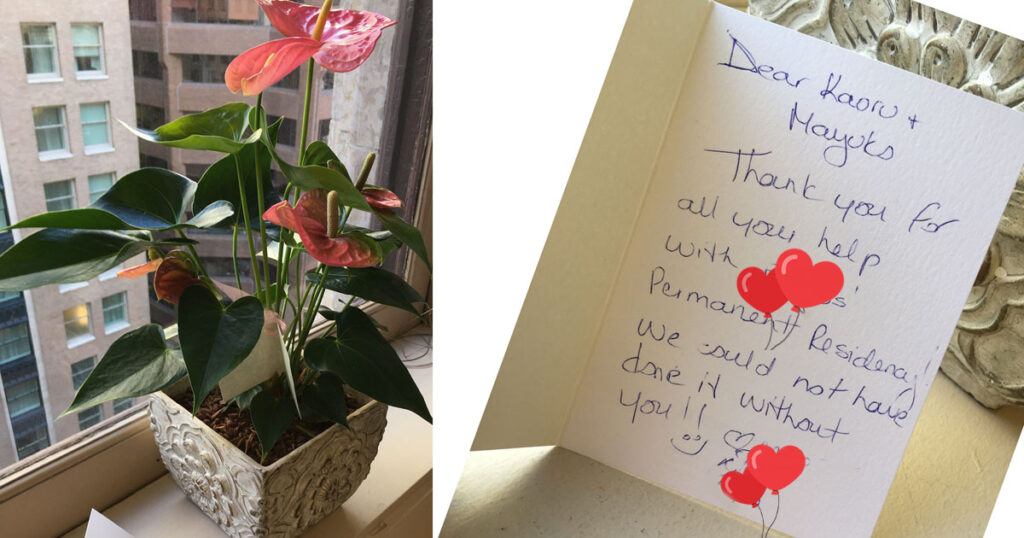 Dear Kaoru +
Mayuko
Thank you for
all your help
with
Permanent Residency!
We could not have
done it without
you!!